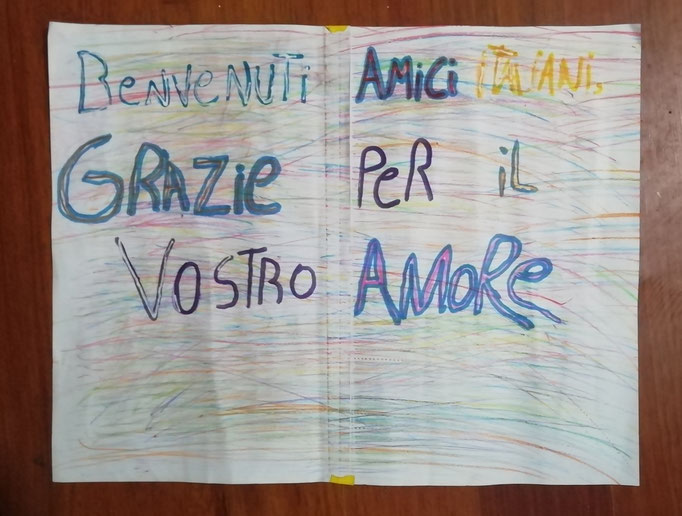 BeNVeNUTi AMiCi iTALiANi.
GRAZie PeR iL
VOSTRO AMORe